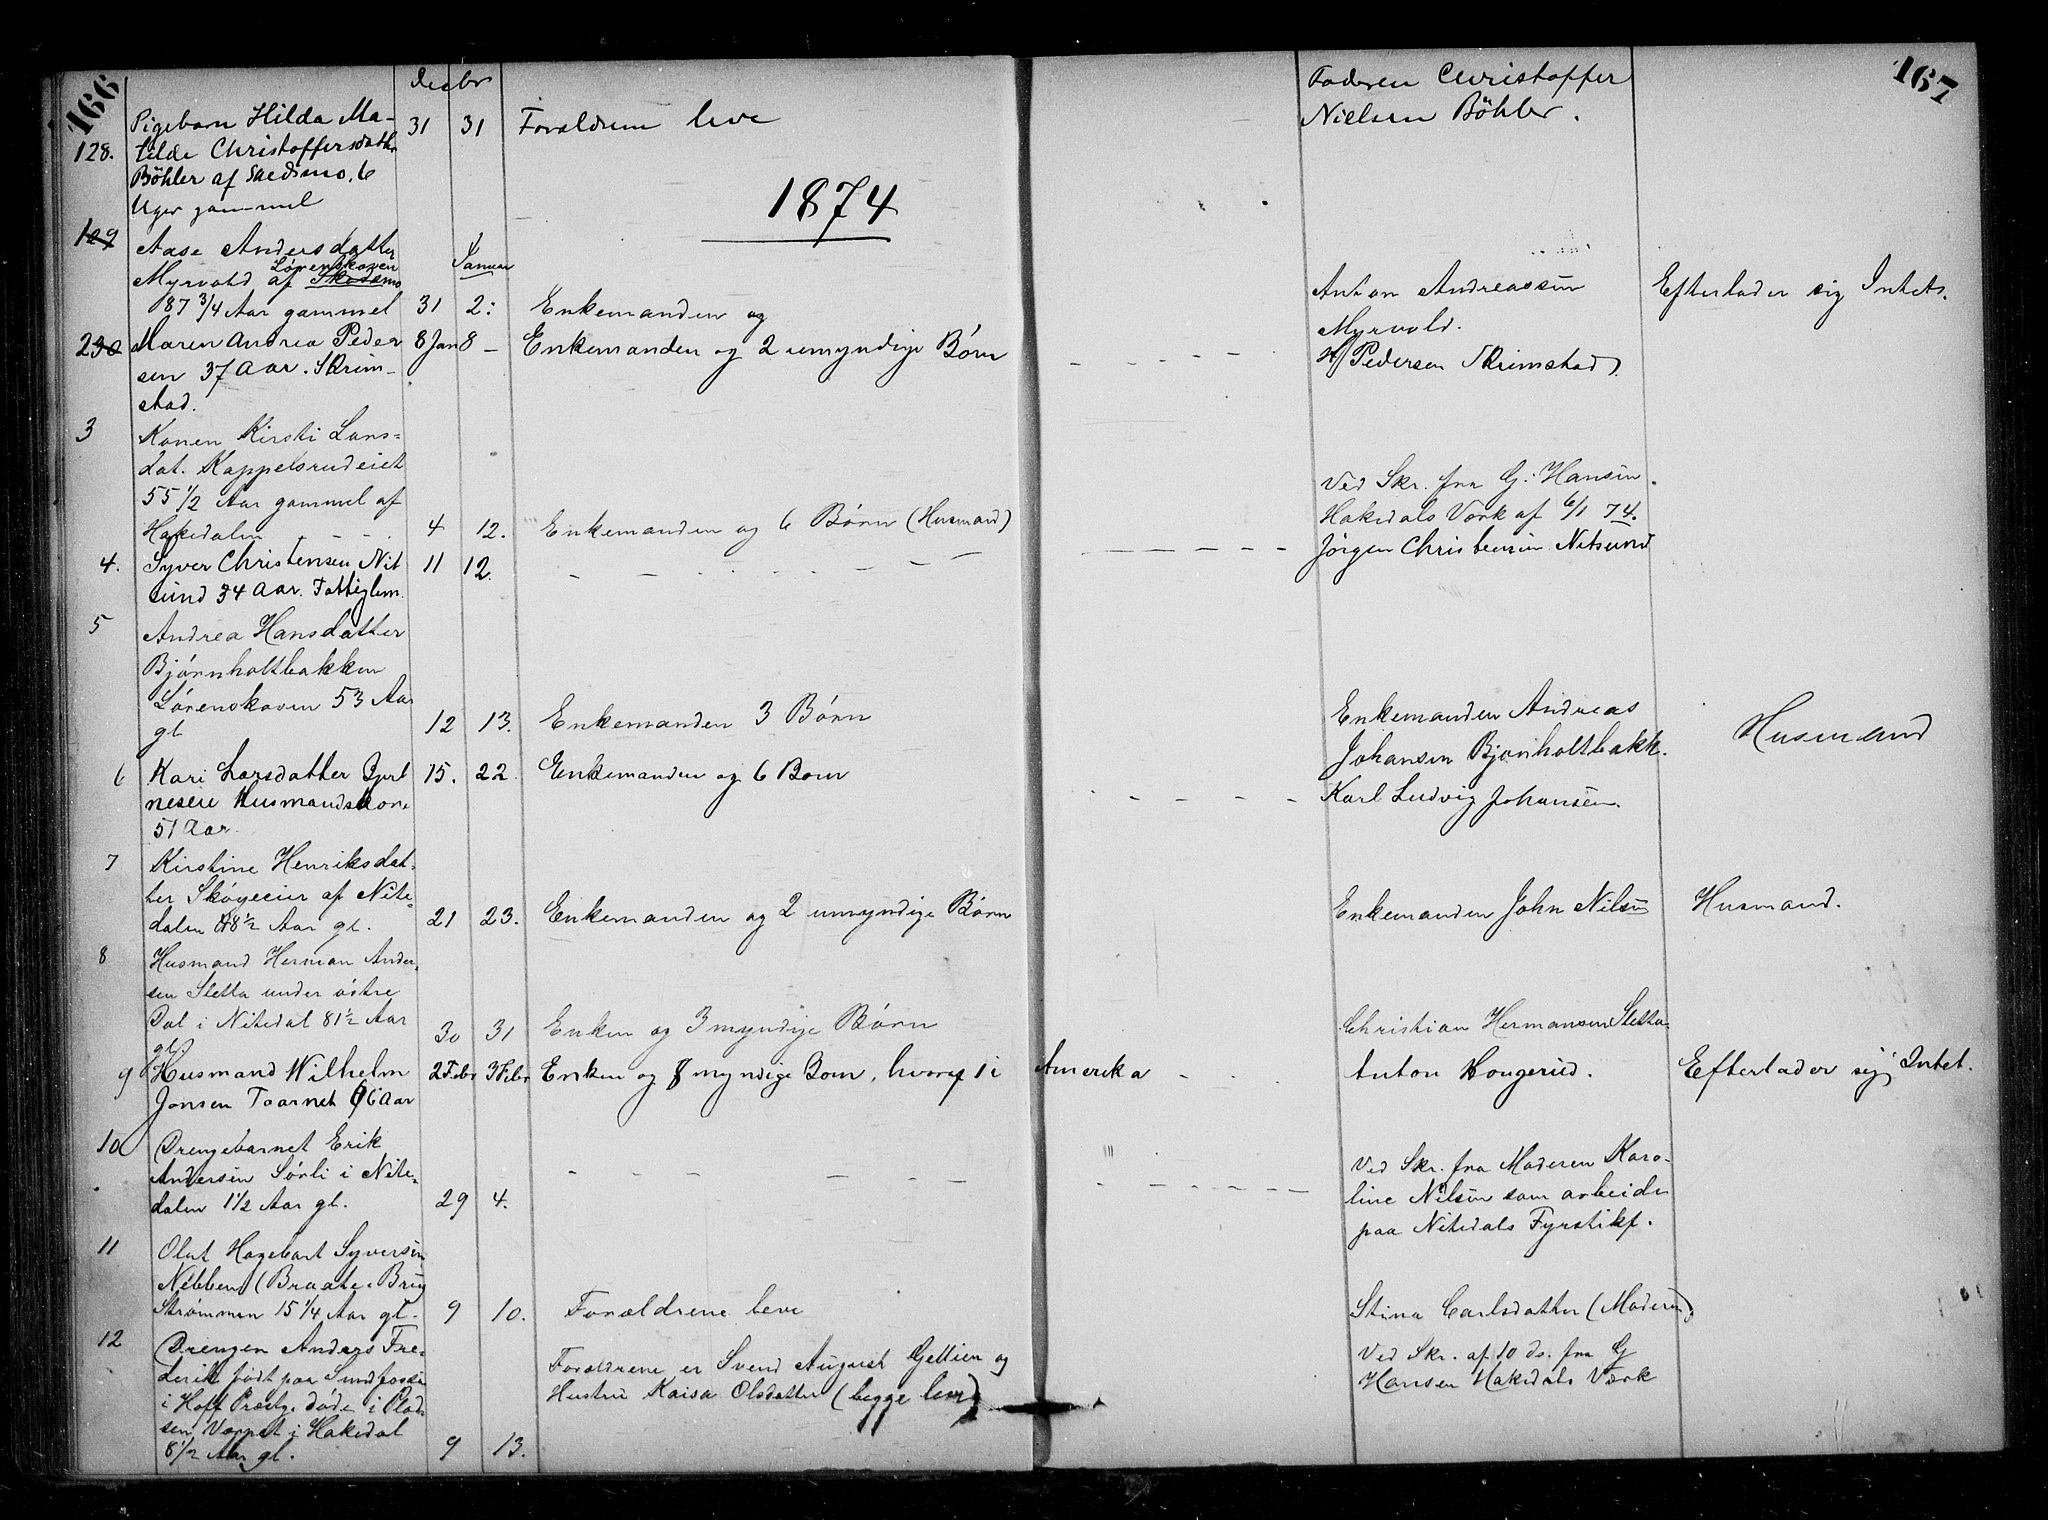 166
167
Decbr
128.
Pigebarn Hilda Ma-
tilde Christoffersdatter
Böhler af Skedsmo, 6
Uger gammel
31 31 Forældrene leve
Faderen Christoffer
Nielsen Böhler.
1874
129
Aase Andersdatter
Myrvold af Skedsmo Lørenskoven
87 3/4 Aar gammel
Januar
31 2. Enkemanden og
Anton Andreassen
Myrvold.
Efterlader sig Intet.
230 Maren Andrea Peder
sen 37 Aar. Skrim-
stad.
8 Jan 8 - Enkemanden og 2 umyndige Börn
H Pedersen Skrimstad.
3 Konen Kirsti Lars=
dat. Kappelsrudeiet
55 1/2 Aar gammel af
Hakedalen
4 12. Enkemanden og 6 Børn (Husmand)
Ved Skr. fra G. Hansen
Hakedals Værk af 6/1 74.
4. Syver Christensen Nit
sund 34 Aar. Fattiglem.
11 12.
Jörgen Christensen Nitsund
5 Andrea Hansdatter
Bjørnholtbakken
Lørenskoven 53 Aar
gl
12 13. Enkemanden 3 Børn
Enkemanden Andreas
Johansen Bjønholtbakk.
Husmand
6 Kari Larsdatter
Husmandskone
51 Aar.
15. 22. Enkemanden og 6 Born
Karl Ludvig Johansen.
7 Kirstine Henriksdat-
ter Skøyeeier af Nite-
dalen 48 1/2 Aar gl.
21 23. Enkemanden og 2 umyndige Børn
Enkemanden John Nilsen
Husmand.
8 Husmand Herman Ander-
sen Sletta under østre
Dal i Nitedal 81 1/2 Aar
gl.
30 31 Enken og 3 myndige Børn
Christian Hermansen Sletta
9 Husmand Wilhelm
Jonsen Taarnet 66 Aar
2 Febr 3 Febr Enken og 8 myndige Born, hvoraf 1 i Amerika
Anton Hougerud.
Efterlader sig Intet.
10 Drengebarnet Erik
Andersen Sørli i Nite-
dalen 1 1/2 Aar gl.
29 4.
Ved Skr. fra Moderen Karo-
line Nilsen som arbeider
paa Nitedals Fyrstikf.
11 Olut Hagebart Syversen
Nebben (Braate Brug
Strømmen 15 1/4 Aar gl.
9 10. Forældrene leve
Stina Carlsdatter (Moderen)
12 Drengen Anders Fre-
derik født paa Sundfossen
i Hoff Præstg. døde i
i Hakedal
8 1/2 Aar gl.
9 13.
Forældrene er Svend August og
Hustru Kaisa Olsdatter (begge lever)
Ved Skr. af 10 ds. fra G
Hansen Hakedals Værk